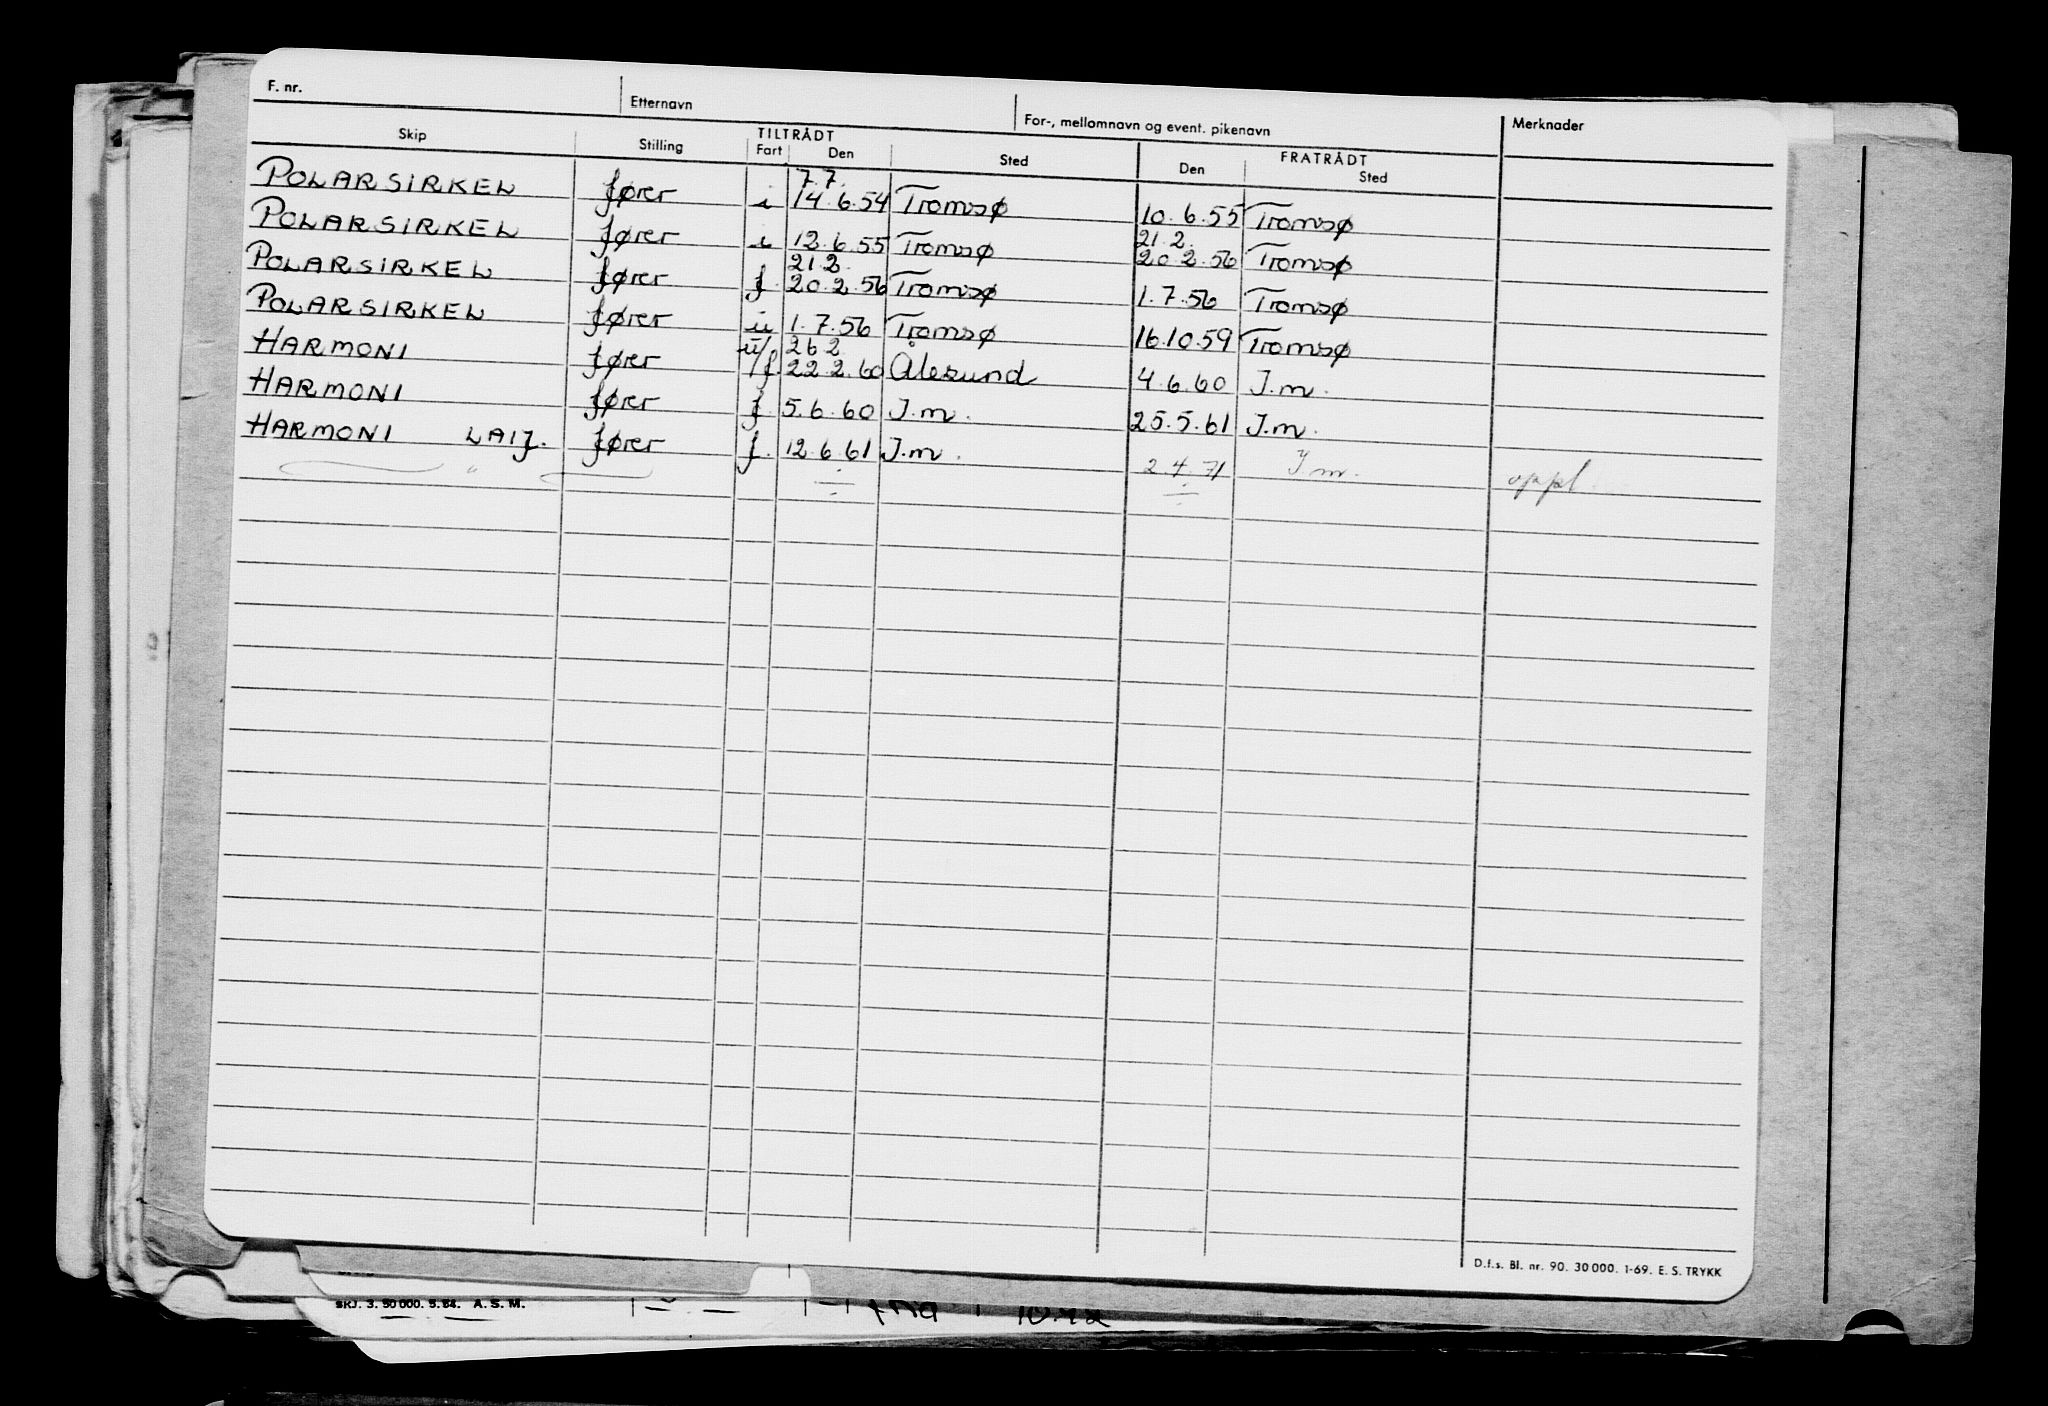 F. nr. Etternavn For-, mellomnavn og event. pikenavn Merknader
TILTRÅDT FRATRÅDT
Skip Stilling Fart Den Sted Den Sted
7.7.
POLARSIRKEL fører i 14.6.54 Tromsø 10.6.55 Tromsø
21.2.
POLARSIRKEL fører i 12.6.55 Tromsø 20.2.56 Tromsø
21.2.
POLARSIRKEL fører f. 20.2.56 Tromsø 1.7.56 Tromsø
POLARSIRKEL fører u 1.7.56 Tromsø 16.10.59 Tromsø
26.2.
HARMONI fører u/f. 22.2.60 Ålesund 4.6.60 J.m.
HARMONI fører f. 5.6.60 J.m. 25.5.61 J.m.
HARMONI LAIJ. fører f. 12.6.61 J.m. 2.4.71 J.m. oppl.
"
D.f.s. Bl. nr. 90. 30 000. 1-69. E. S. TRYKK
SKJ. 3. 50 000. 5. 64. A. S. M.